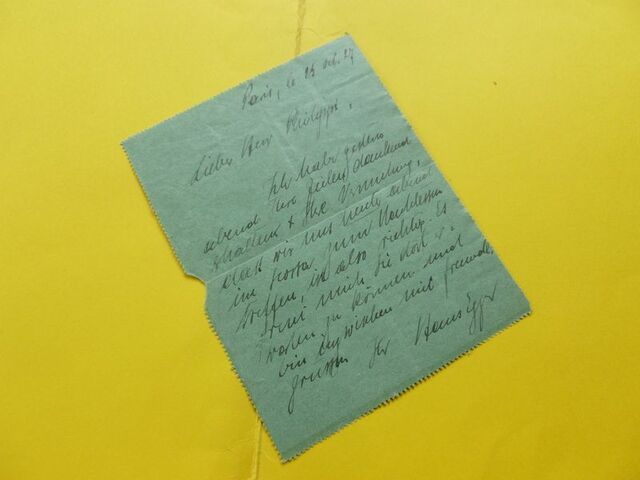 Paris, le 25 oct. 27
Lieber Herr Philippe,
Ich habe gestern
abend Ihre Zeilen dankend
erhalten & Ihre Vermutung,
dass wir uns heute abend
im zum Nachtessen
treffen, ist also richtig. Es
freut mich Sie dort
zu können und
bin inzwischen mit freundl.
Grüssen Ihr Hans